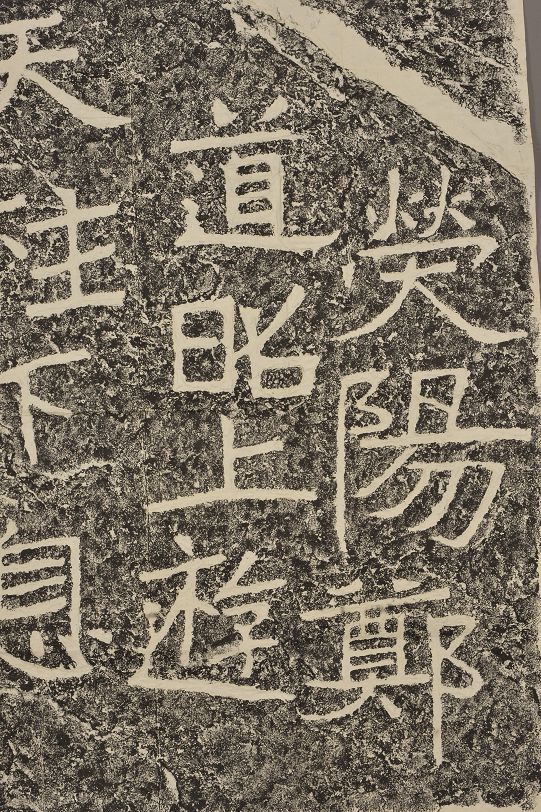 熒陽鄭
道昭上遊
天柱下息